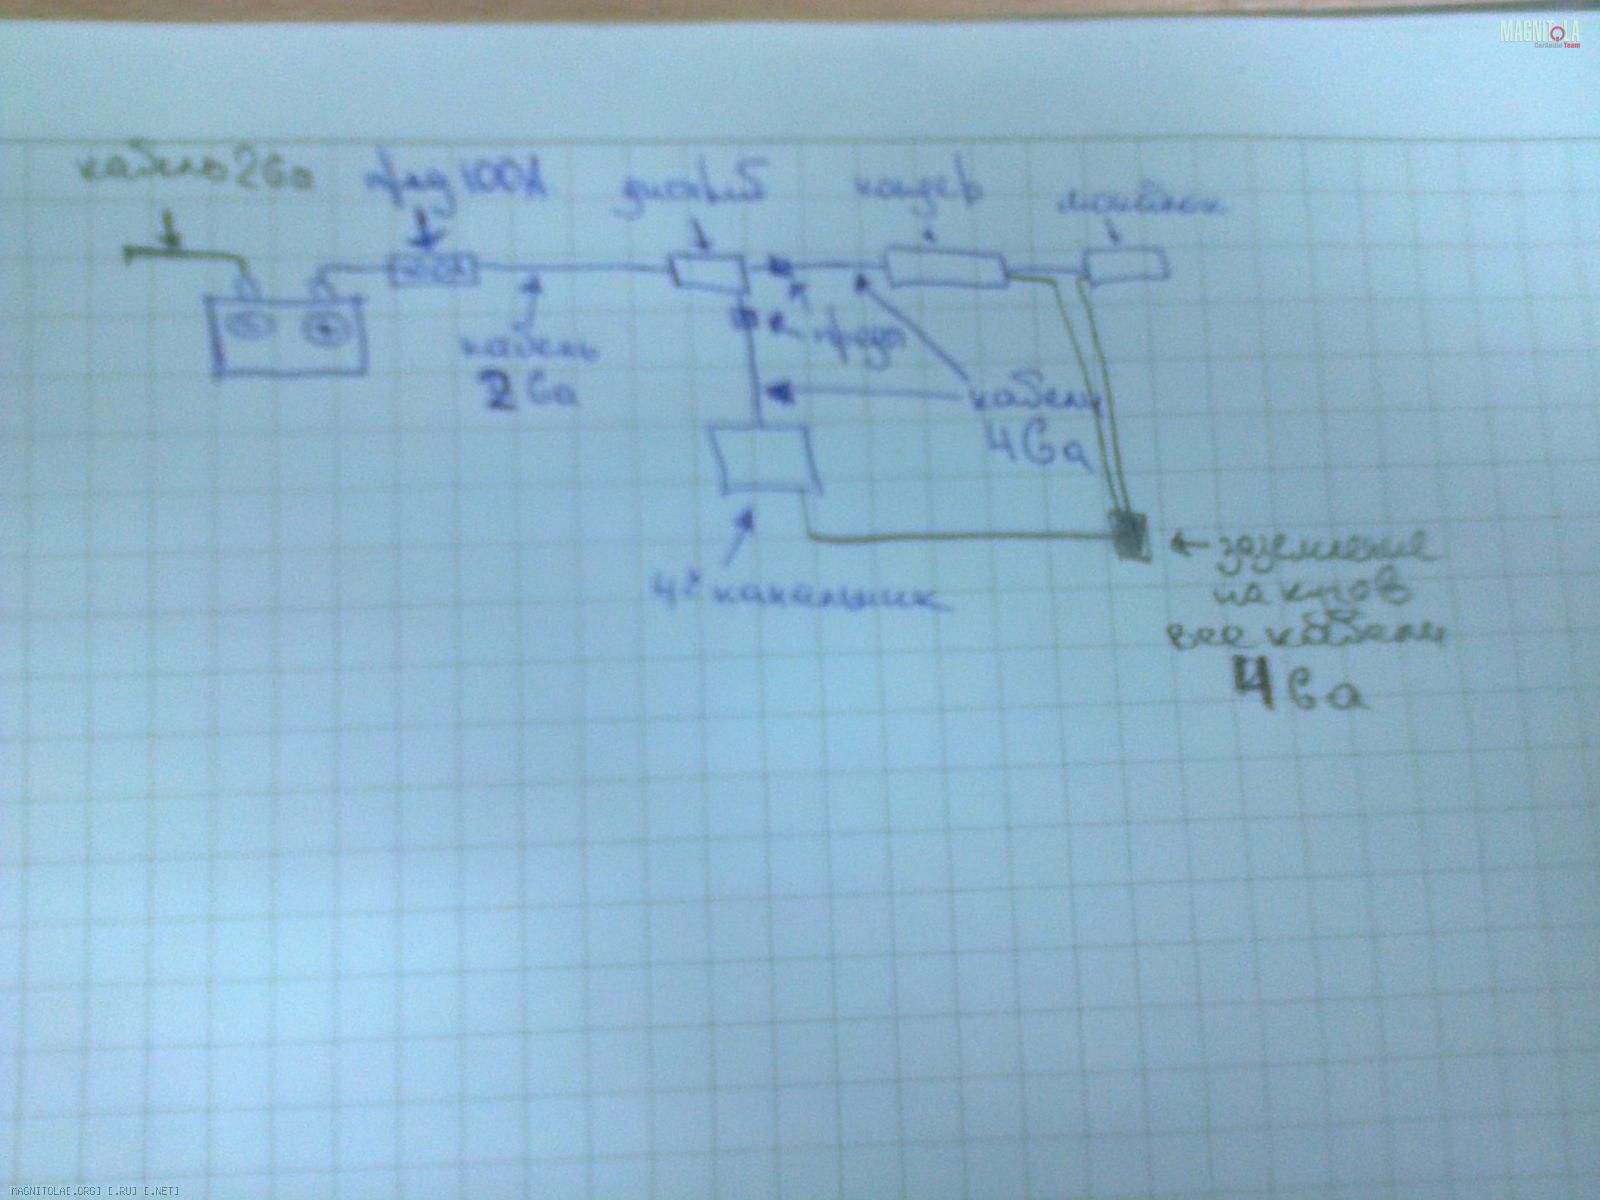 MAGNITOLA
CarAudio Team
кабель 2Ga
пред 100А
дистриб
кондер
моноблок
кабель
2Ga
преды
кабели
4Ga
4х канальщик
заземление
на кузов
все кабели
4Ga
MAGNITOLA[.ORG] [.RU] [.NET]